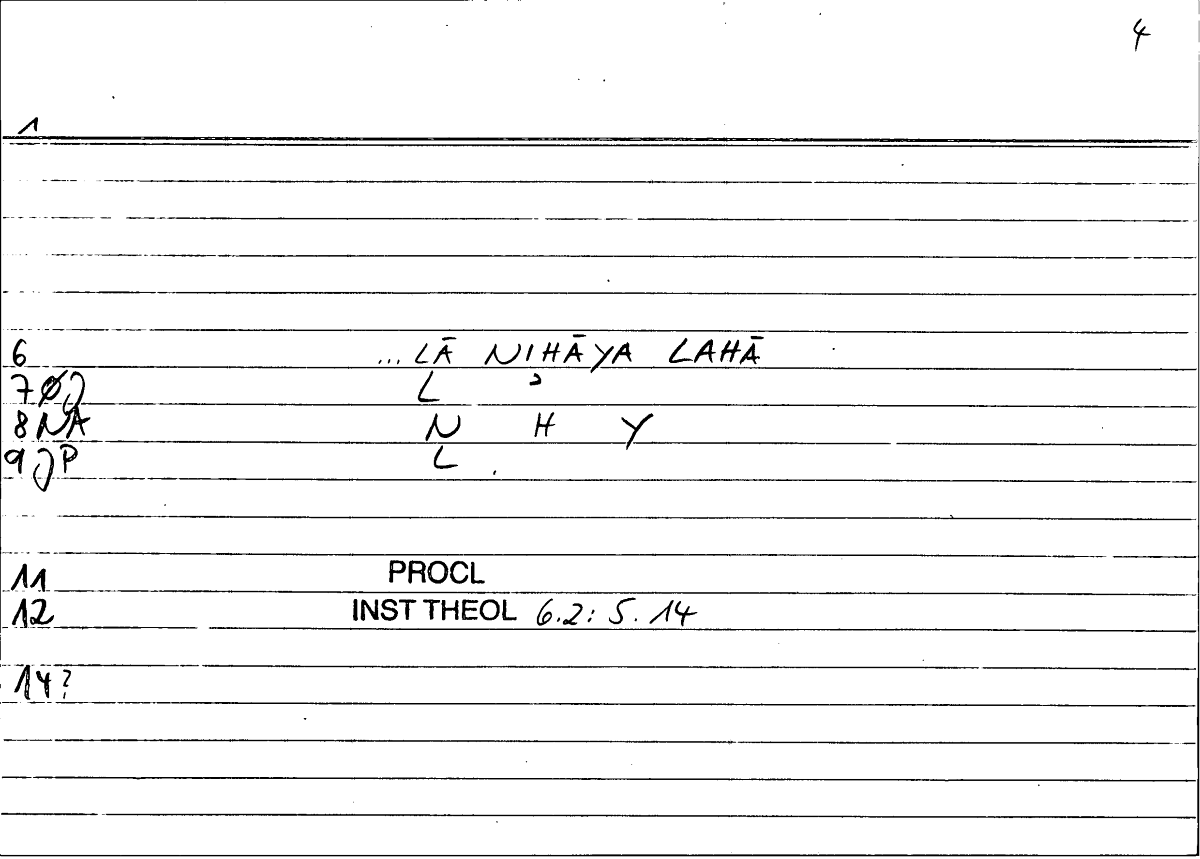 4
1
6 ... LĀ NIHĀYA LAHĀ
7 ØJ L ʾ
8 NA N H Y
9 JP L
11 PROCL
12 INST THEOL 6.2: 5.14
14?